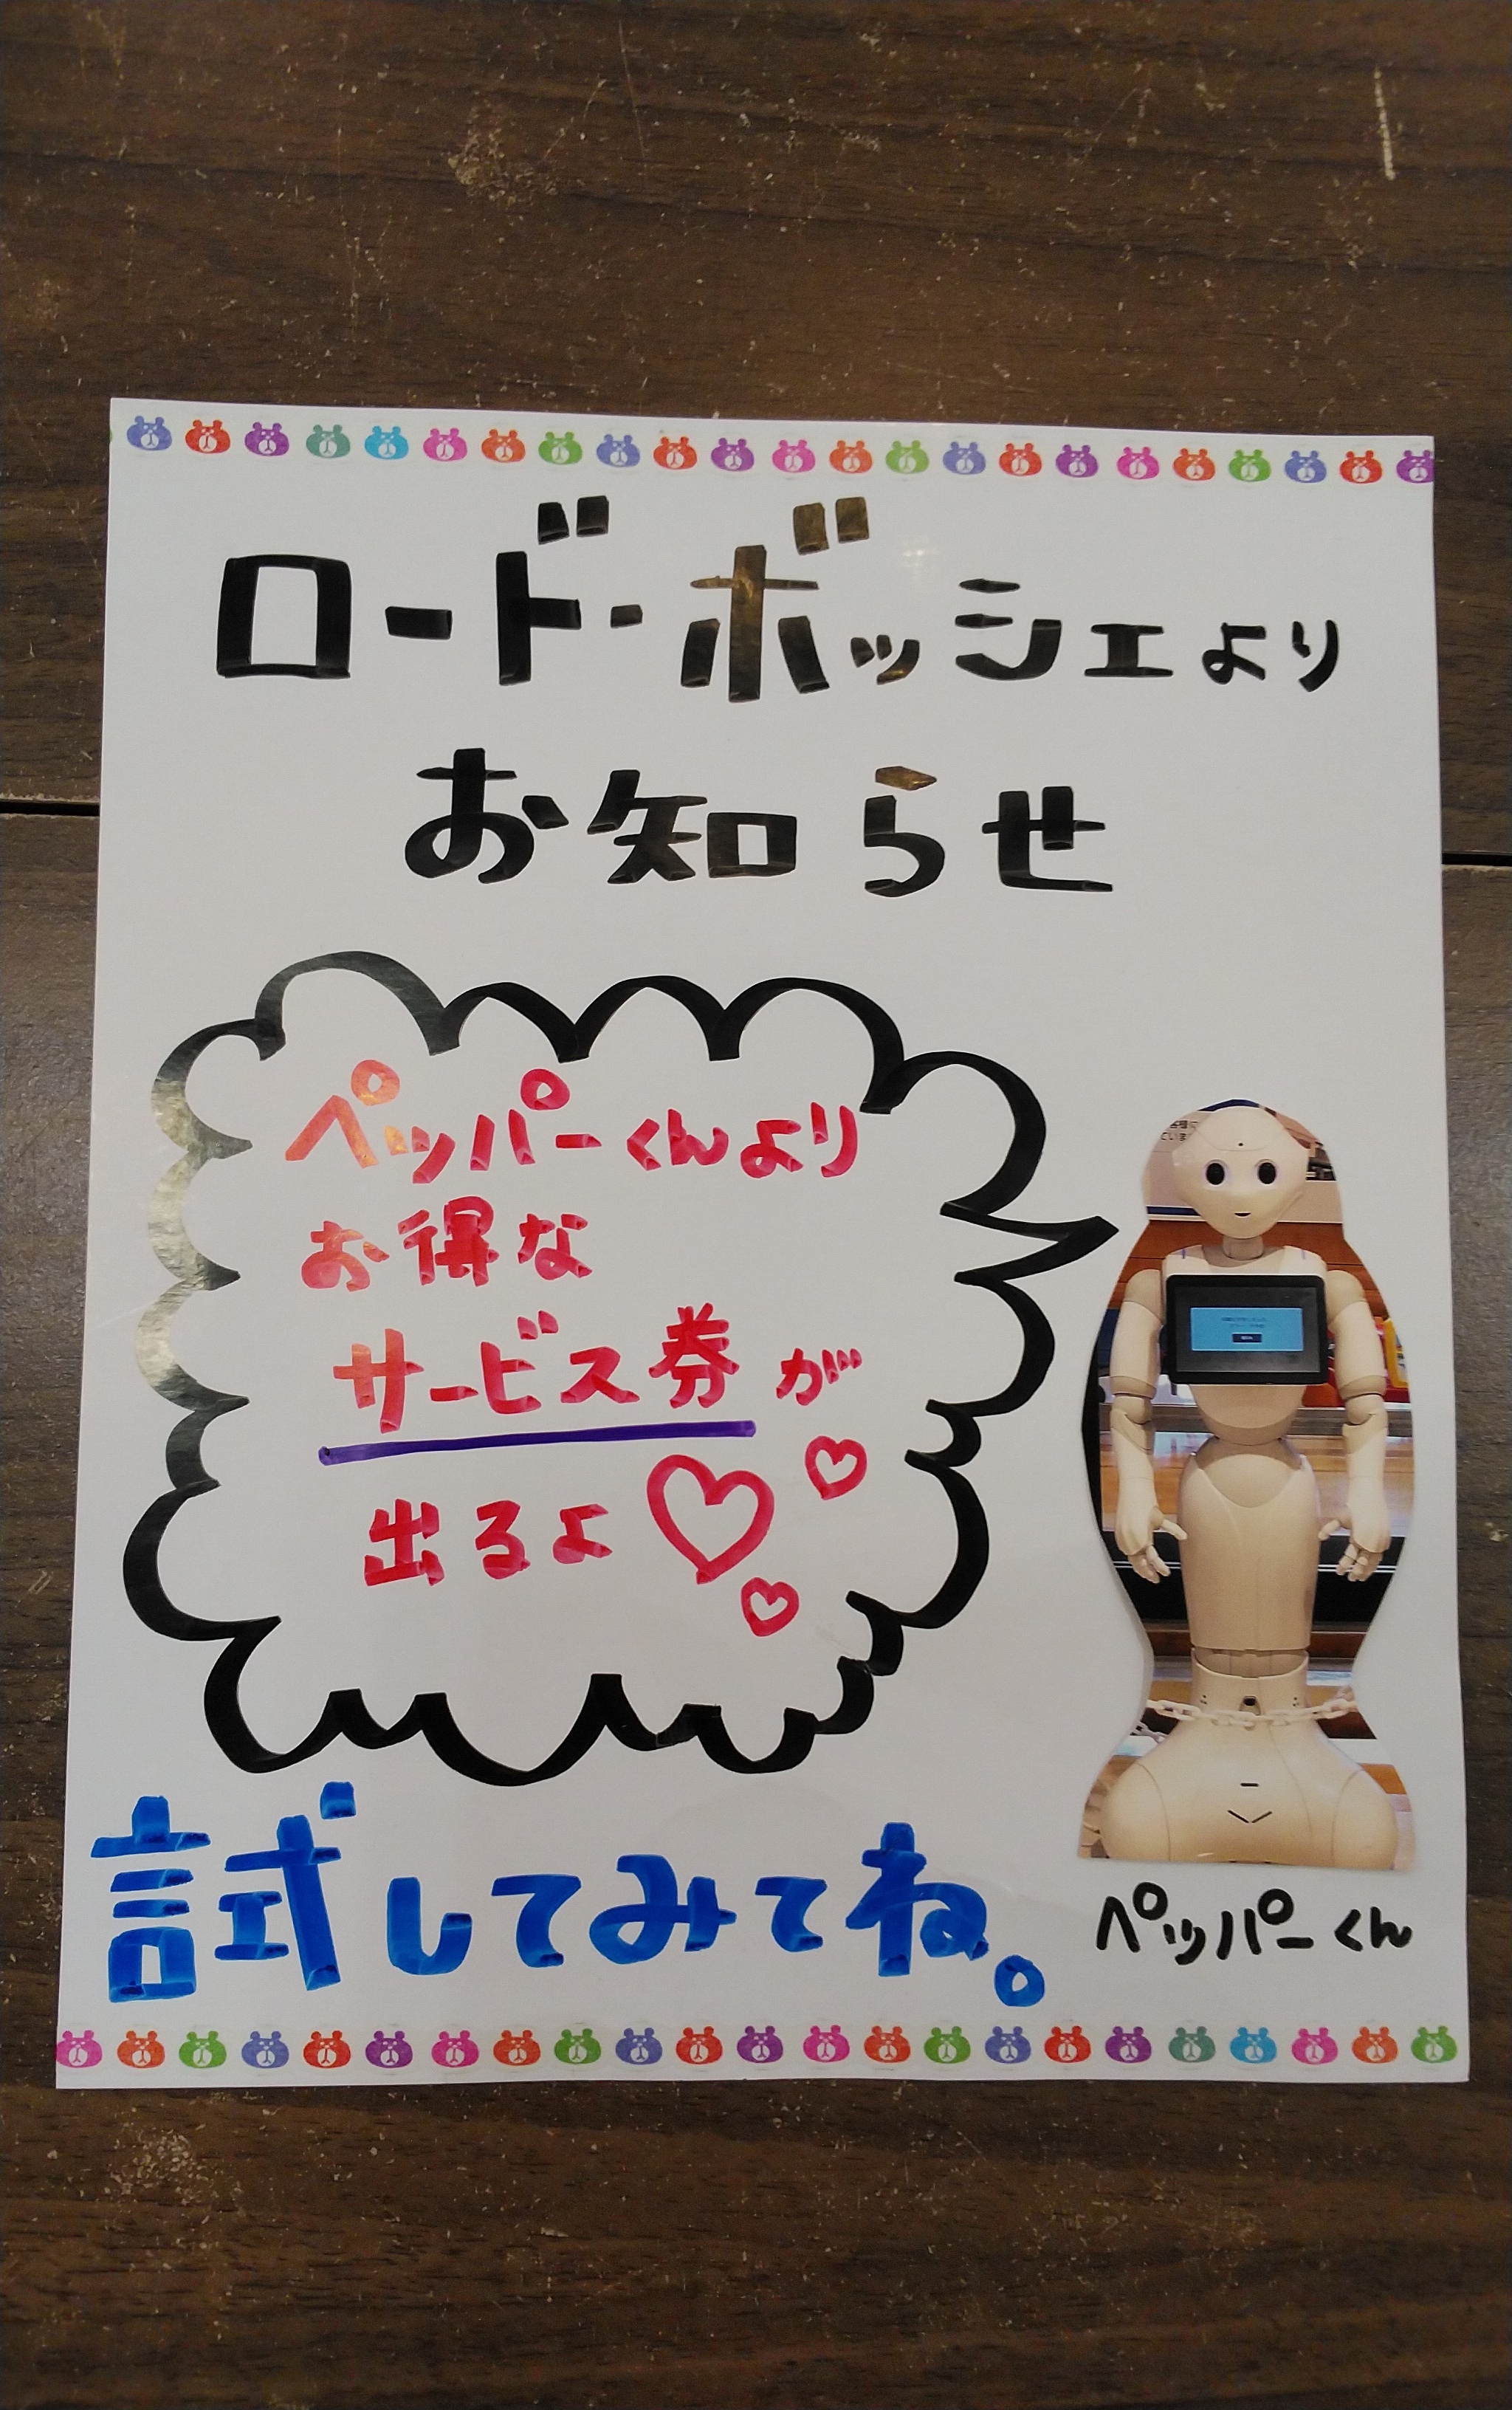 ロード・ボッシェより
お知らせ
ペッパーくんより
お得な
サービス券が
出るよ♡♡♡
試してみてね。
ペッパーくん